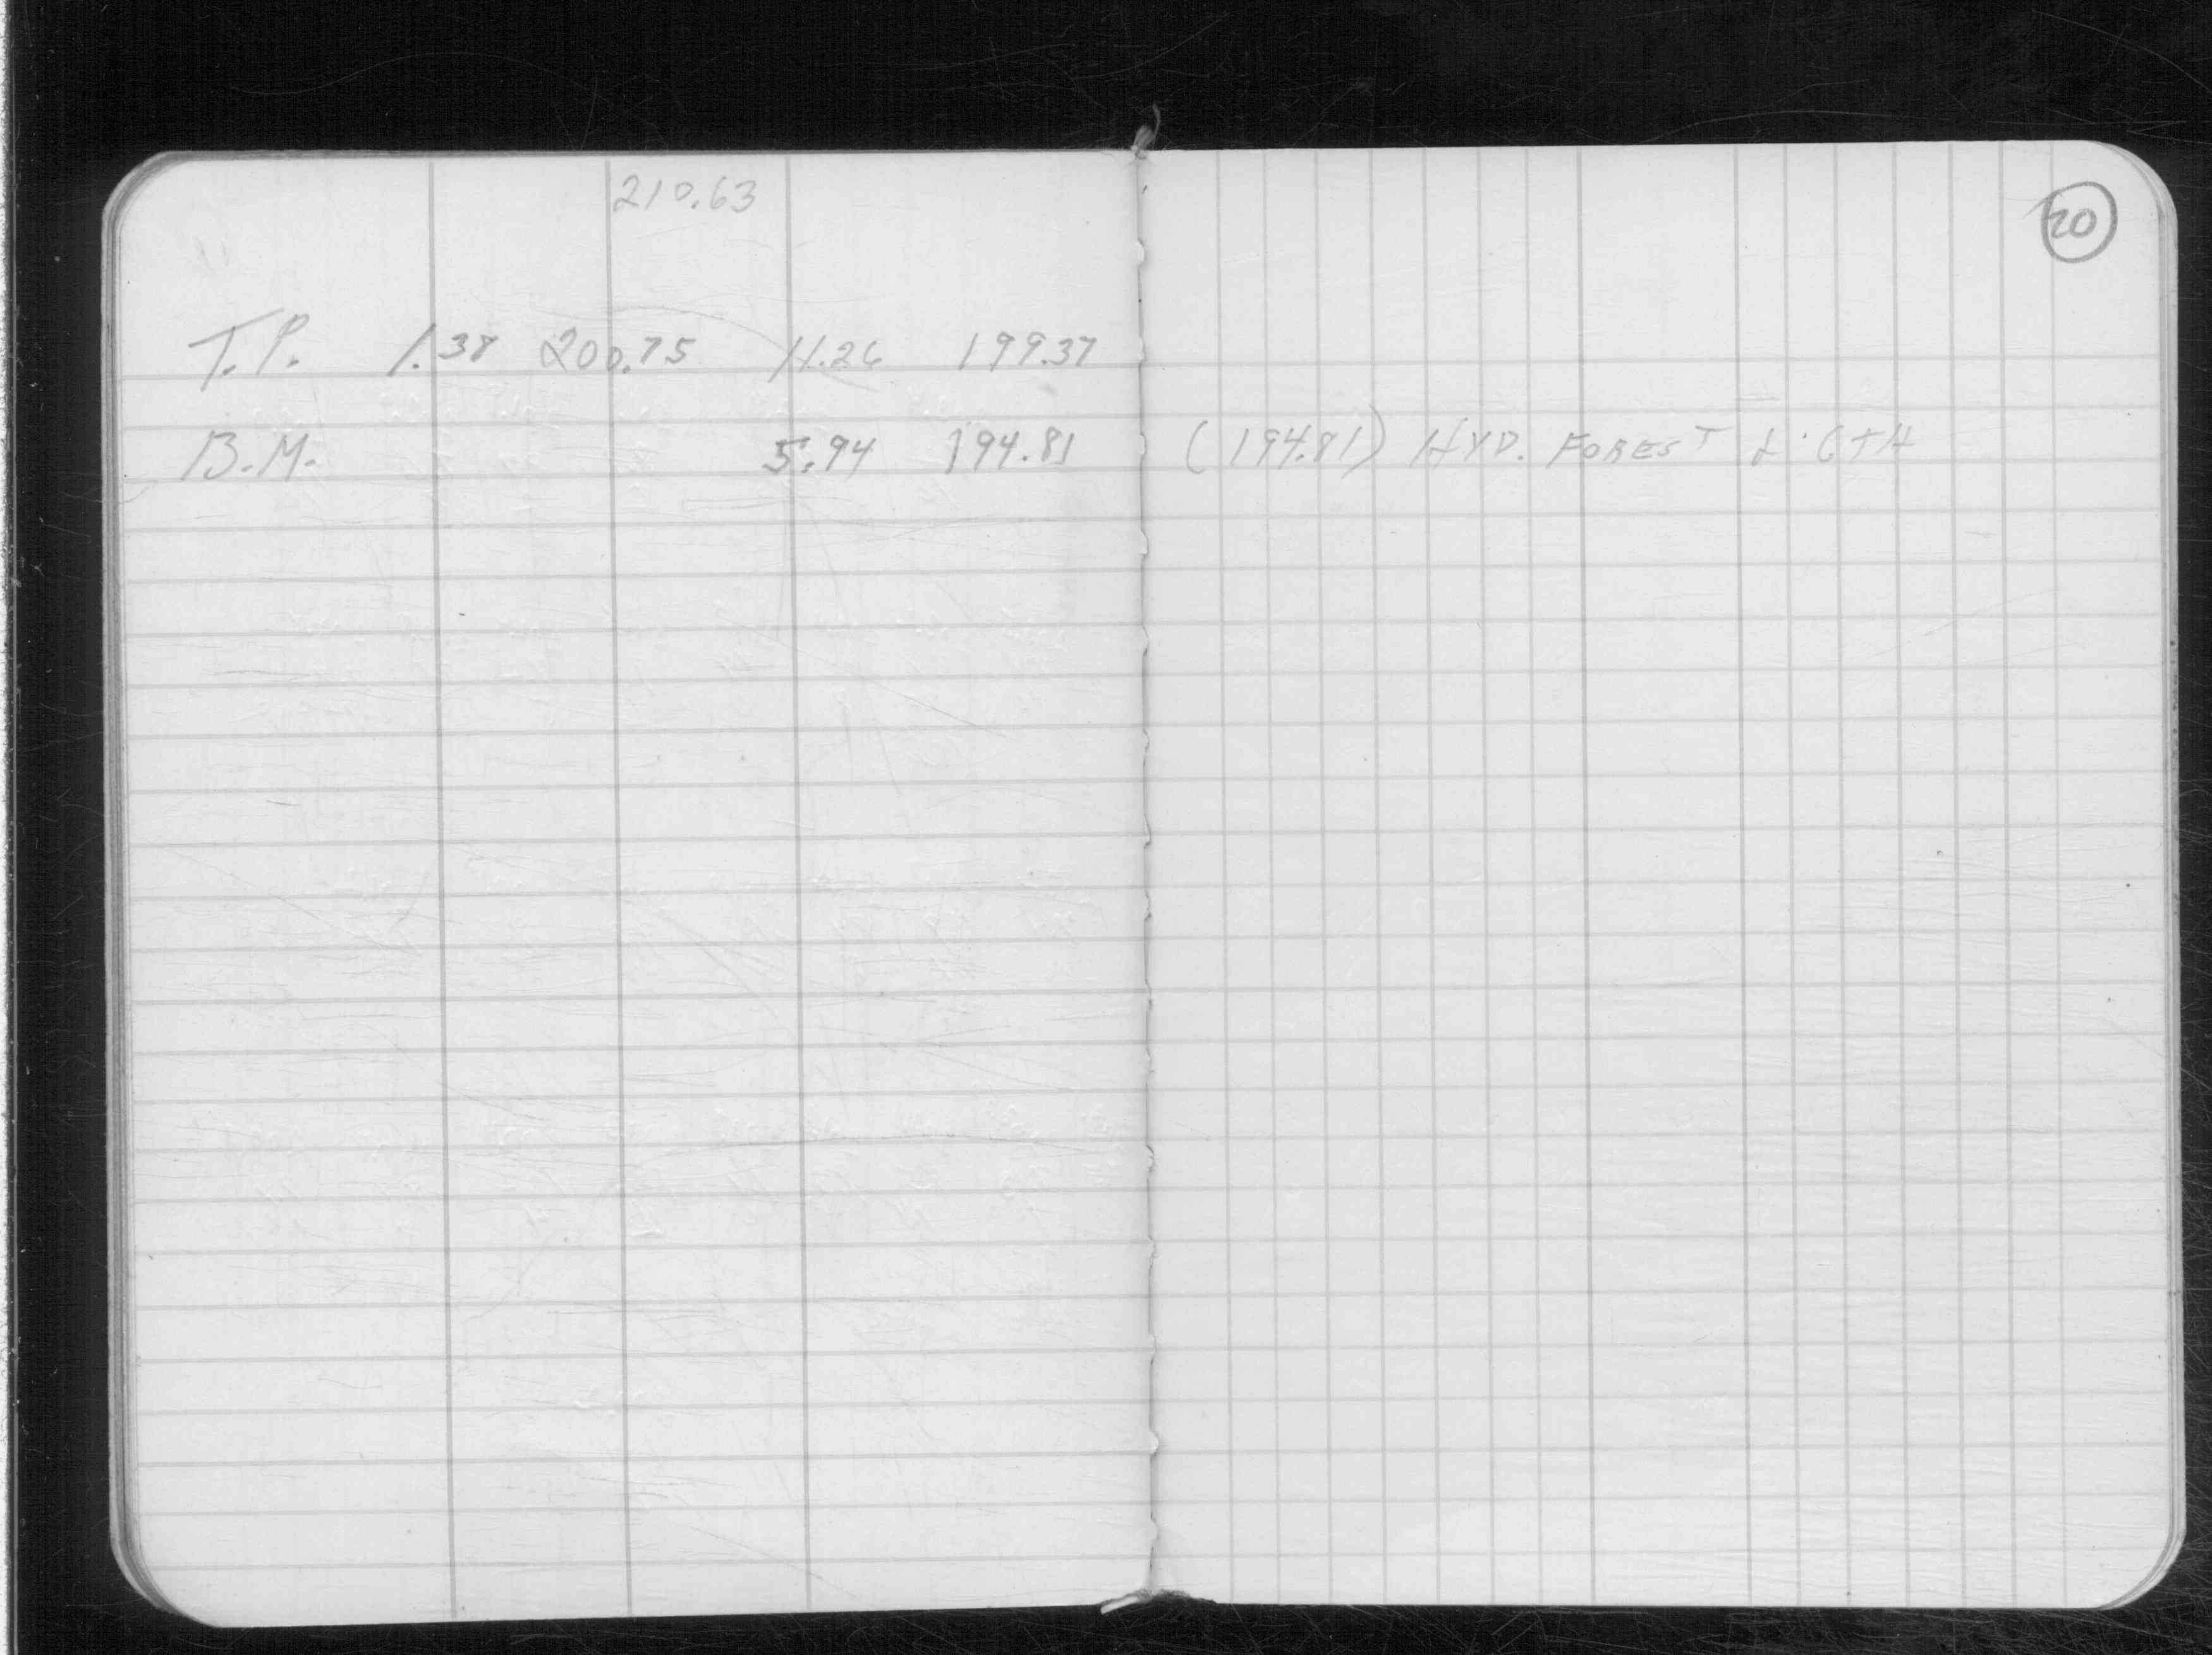 210.63
20
T.P. 1.38 200.75 11.26 199.37
B.M. 5.94 194.81 (194.81) HYD. FOREST & 6TH